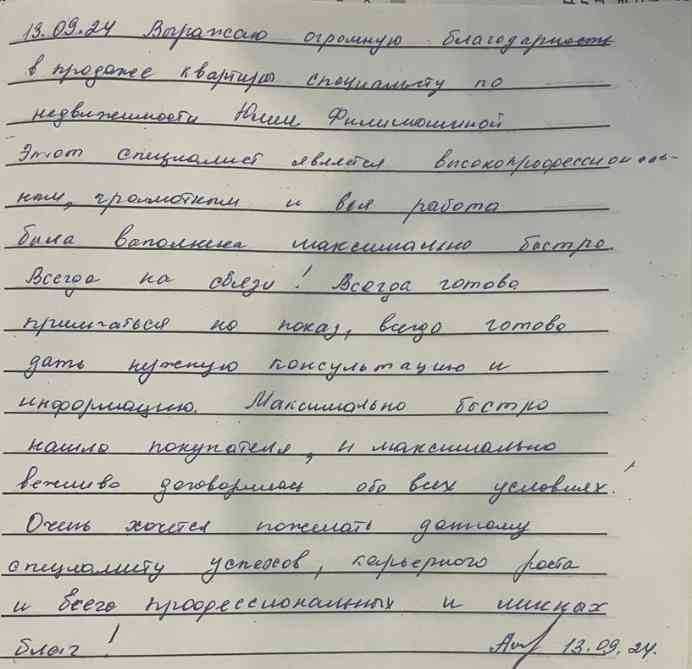 13.09.24 Выражаю огромную благодарность
в продаже квартиры специалисту по
недвижимости Юлии Филимошиной
Этот специалист является высокопрофессиональ-
ным, грамотным и вся работа
была выполнена максимально быстро.
Всегда на связи! Всегда готова
примчаться на показ, всегда готова
дать нужную консультацию и
информацию. Максимально быстро
нашла покупателя, и максимально
вежливо договорилась обо всех условиях.
Очень хочется пожелать данному
специалисту успехов, карьерного роста
и всего профессиональных и личных
благ! 13.09.24.